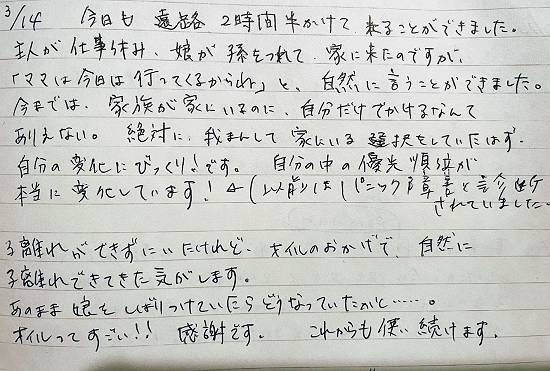 3/14 今日も 遠路 2時間半かけて 来ることができました。
主人が仕事休み、娘が 孫をつれて 家に来たのですが、
「ママは今日は行ってくるからね」と、自然に言うことができました。
今までは、家族が家にいるのに、自分だけでかけるなんて
ありえない。 絶対に、我まんして 家にいる 選択をしていたはず。
自分の変化にびっくり!です。 自分の中の優先順位が
本当に変化しています! ←(以前はパニック障害と診断
されていました。
子離れができずにいたけれど、オイルのおかげで、自然に
子離れできてきた気がします。
あのまま娘をしばりつけていたらどうなっていたかと……。
オイルってすごい!! 感謝です。 これからも使い続けます。